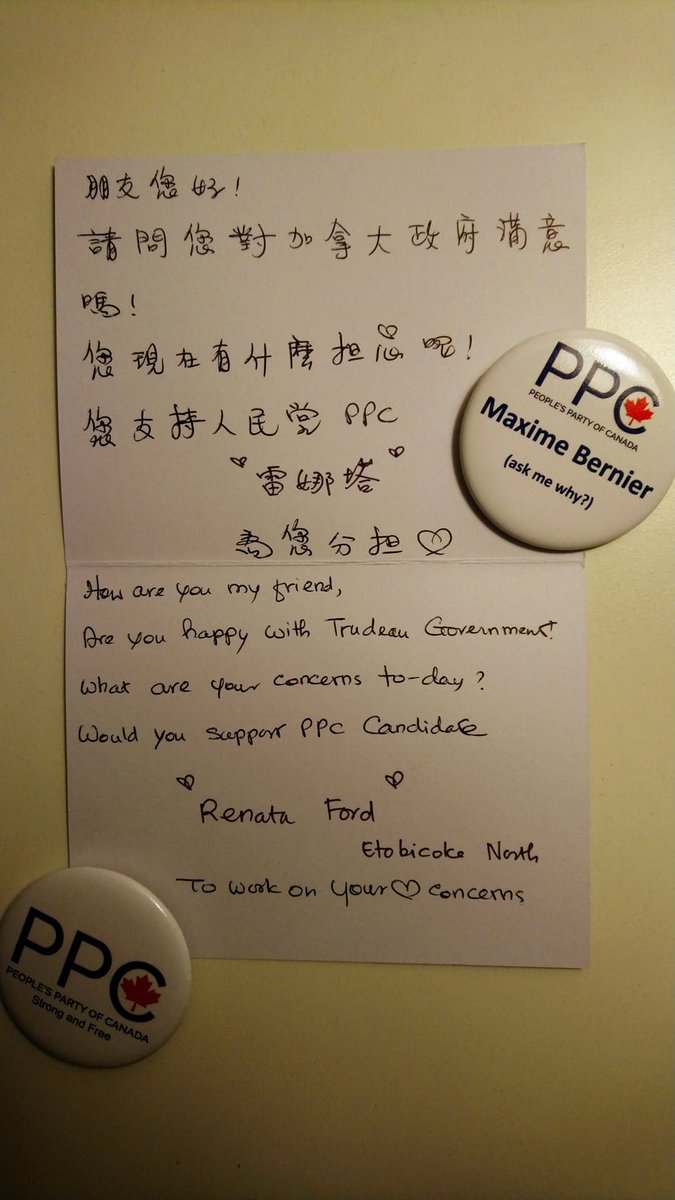 朋友您好!
請問您對加拿大政府滿意
嗎!
您現在有什麼担心呢!
您支持人民党 PPC
雷娜塔
為您分担♡
How are you my friend,
Are you happy with Trudeau Government?
What are your concerns to-day?
Would you support PPC Candidate
Renata Ford
Etobicoke North
To work on your ♡ concerns
PPC
PEOPLE'S PARTY OF CANADA
Maxime Bernier
(ask me why?)
PPC
PEOPLE'S PARTY OF CANADA
Strong and Free